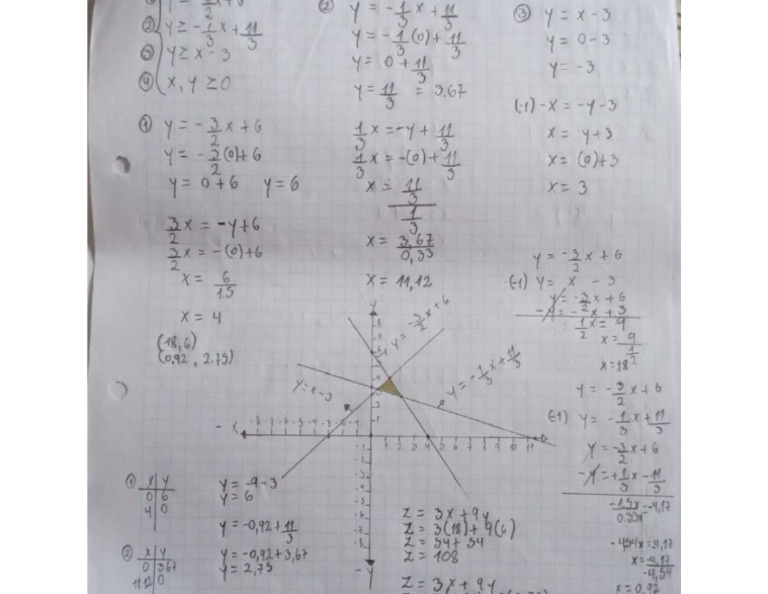 ② y ≥ -1/3 x + 11/3
③ y ≥ x - 3
④ x, y ≥ 0
① y = -3/2 x + 6
y = -3/2 (0) + 6
y = 0 + 6 y = 6
3/2 x = -y + 6
3/2 x = -(0) + 6
x = 6/1.5
x = 4
(18, 6)
(0.92, 2.75)
② y = -1/3 x + 11/3
y = -1/3 (0) + 11/3
y = 0 + 11/3
y = 11/3 = 3.67
1/3 x = -y + 11/3
1/3 x = -(0) + 11/3
x = 11/3 / 1/3
x = 3,67/0,33
x = 11,12
③ y = x - 3
y = 0 - 3
y = -3
(-1) -x = -y - 3
x = y + 3
x = (0) + 3
x = 3
y = -3/2 x + 6
(-1) y = x - 3
y = -3/2 x + 6
-y = -x + 3
1/2 x = 9
x = 9 / 1/2
x = 18
y = -3/2 x + 6
(-1) y = -1/3 x + 11/3
y = -3/2 x + 6
-y = +1/3 x - 11/3
-4,54x = -4,17
x = -4,17/-4,54
x = 0.92
y
y = -3/2 x + 6
y = x - 3
y = -1/3 x + 11/3
- x
-8 -7 -6 -5 -4 -3 -2 -1
1 2 3 4 5 6 7 8 9 10 11
- y
① x y
0 6
4 0
② x y
0 3.67
11.12 0
y = 9 - 3
y = 6
y = -0,92 + 11/3
y = -0,92 + 3,67
y = 2,75
z = 3x + 9y
z = 3(18) + 9(6)
z = 54 + 54
z = 108
z = 3x + 9y